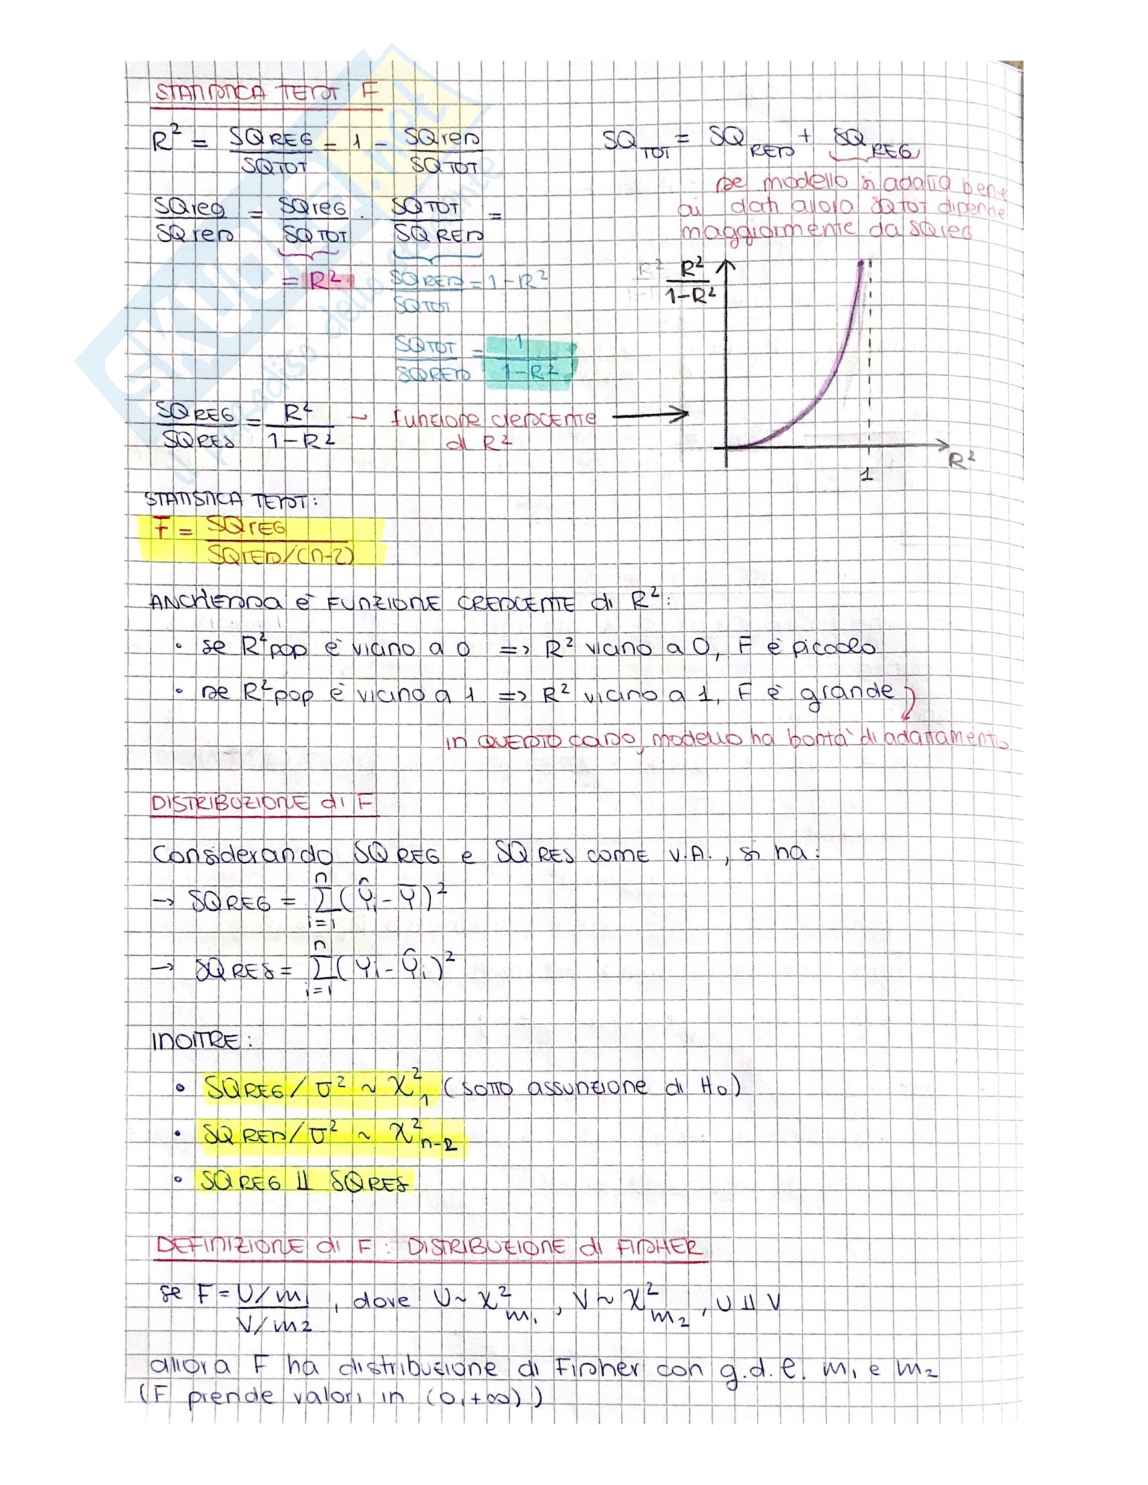 STATISTICA TEST F
R² = SQREG/SQTOT = 1 - SQres/SQTOT
SQTOT = SQRES + SQREG
se modello si adatta bene
ai dati allora SQTOT dipende
maggiormente da SQreg
SQreg/SQres = SQreg/SQTOT · SQTOT/SQRES =
= R²
SQRES/SQTOT = 1-R²
SQTOT/SQRES = 1/1-R²
R²/1-R²
1
R²
SQREG/SQRES = R²/1-R² ~ funzione crescente
di R²
STATISTICA TEST:
F = SQreg/SQres/(n-2)
ANCH'ESSA è FUNZIONE CRESCENTE di R²:
• se R²pop è vicino a 0 => R² vicino a 0, F è piccolo
• se R²pop è vicino a 1 => R² vicino a 1, F è grande
in QUESTO CASO, modello ha bontà di adattamento
DISTRIBUZIONE di F
Considerando SQREG e SQRES COME V.A., si ha:
→ SQREG = Σ_{i=1}^{n} (Ŷi - Ȳ)²
→ SQRES = Σ_{i=1}^{n} (Yi - Ŷi)²
INOLTRE:
• SQREG/σ² ~ χ²₁ (sotto assunzione di H₀)
• SQRES/σ² ~ χ²n-2
• SQREG ⫫ SQRES
DEFINIZIONE di F: DISTRIBUZIONE di FISHER
se F = U/m₁/V/m₂, dove U ~ χ²m₁, V ~ χ²m₂, U ⫫ V
allora F ha distribuzione di Fisher con g.d.l. m₁ e m₂
(F prende valori in (0,+∞))